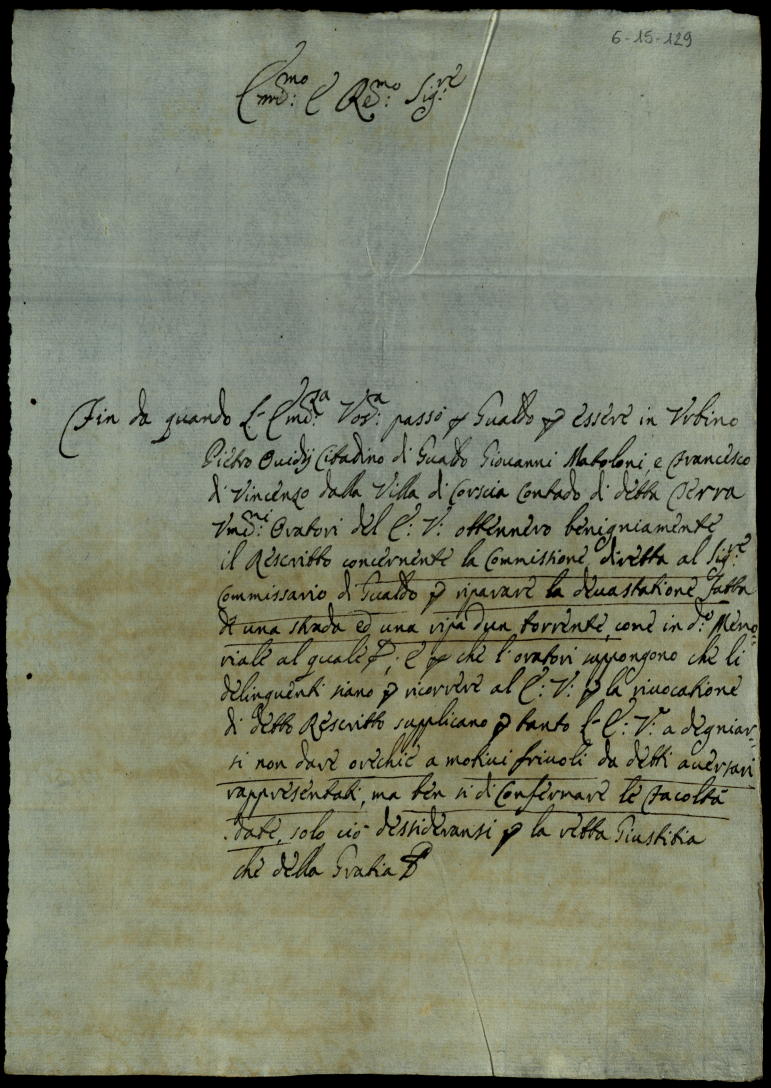 6-15-129
Em.mo e Re.mo Sig.re
Fin da quando L'Em.za Vos.a passò p Gualdo p essere in Urbino
Pietro Ouidij Cittadino di Gualdo Giovanni Mataloni, e Francesco
di Vincenzo dalla Villa di Corscia Contado di detta Terra
Vm.mi Oratori del E: V: ottennero benigniamente
il Rescritto concernente la Commissione diretta al Sig.re
Commissario di Gualdo p riparare la devastatione fatta
di una strada ed una ripa d'un torrente, come in d.o Memo-
riale al quale; E p che l'oratori suppongono che li
delinquenti siano p ricorrere al E: V: p la rivocatione
di detto Rescritto supplicano p tanto L'E: V: a degniar-
si non dare orechie a motivi frivoli da detti aversari
rappresentati, ma ben si di Confermare le Facoltà
date, solo ciò dessideransi p la retta Giustitia
che della Gratia